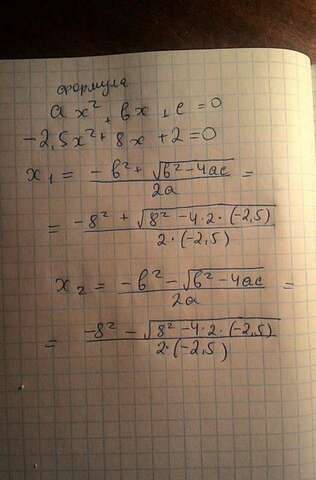 формула
ax² + bx + c = 0
-2,5x² + 8x + 2 = 0
x₁ = (-b² + √(b² - 4ac)) / 2a =
= (-8² + √(8² - 4·2·(-2,5))) / 2·(-2,5)
x₂ = (-b² - √(b² - 4ac)) / 2a =
= (-8² - √(8² - 4·2·(-2,5))) / 2·(-2,5)